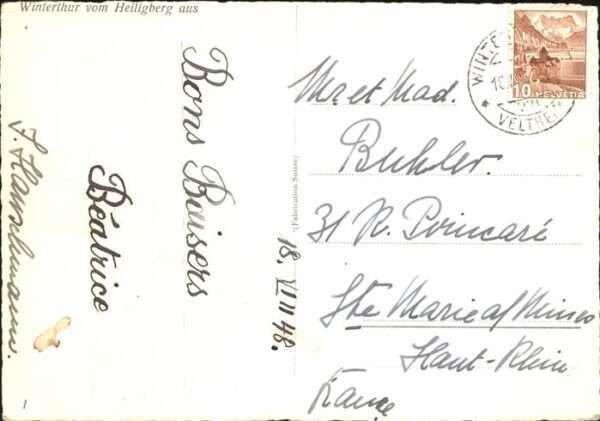 Winterthur vom Heiligberg aus
Bons Baisers
Béatrice
18. VIII 48.
(Fabrication Suisse)
M et Mad.
Buhler.
31 R. Poincaré
Ste Marie a/ Mines
Haut-Rhin
France
10 HELVETIA
VELTHEI
1